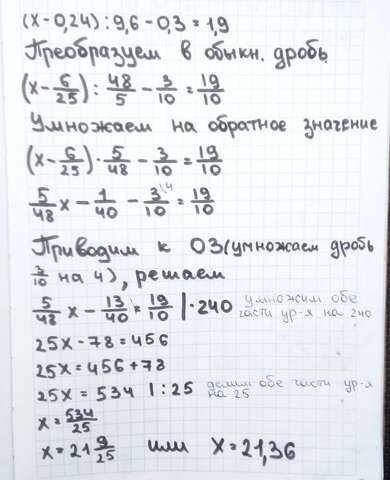 (x-0,24):9,6-0,3=1,9
Преобразуем в обыкн. дробь
(x-6/25):48/5-3/10=19/10
Умножаем на обратное значение
(x-6/25)·5/48-3/10=19/10
5/48x-1/40-3/10\4=19/10
Приводим к ОЗ(умножаем дробь
3/10 на 4), решаем
5/48x-13/40=19/10 |·240 умножим обе
части ур-я на 240
25x-78=456
25x=456+78
25x=534 |:25 делим обе части ур-я
на 25
x=534/25
x=21 9/25 или x=21,36